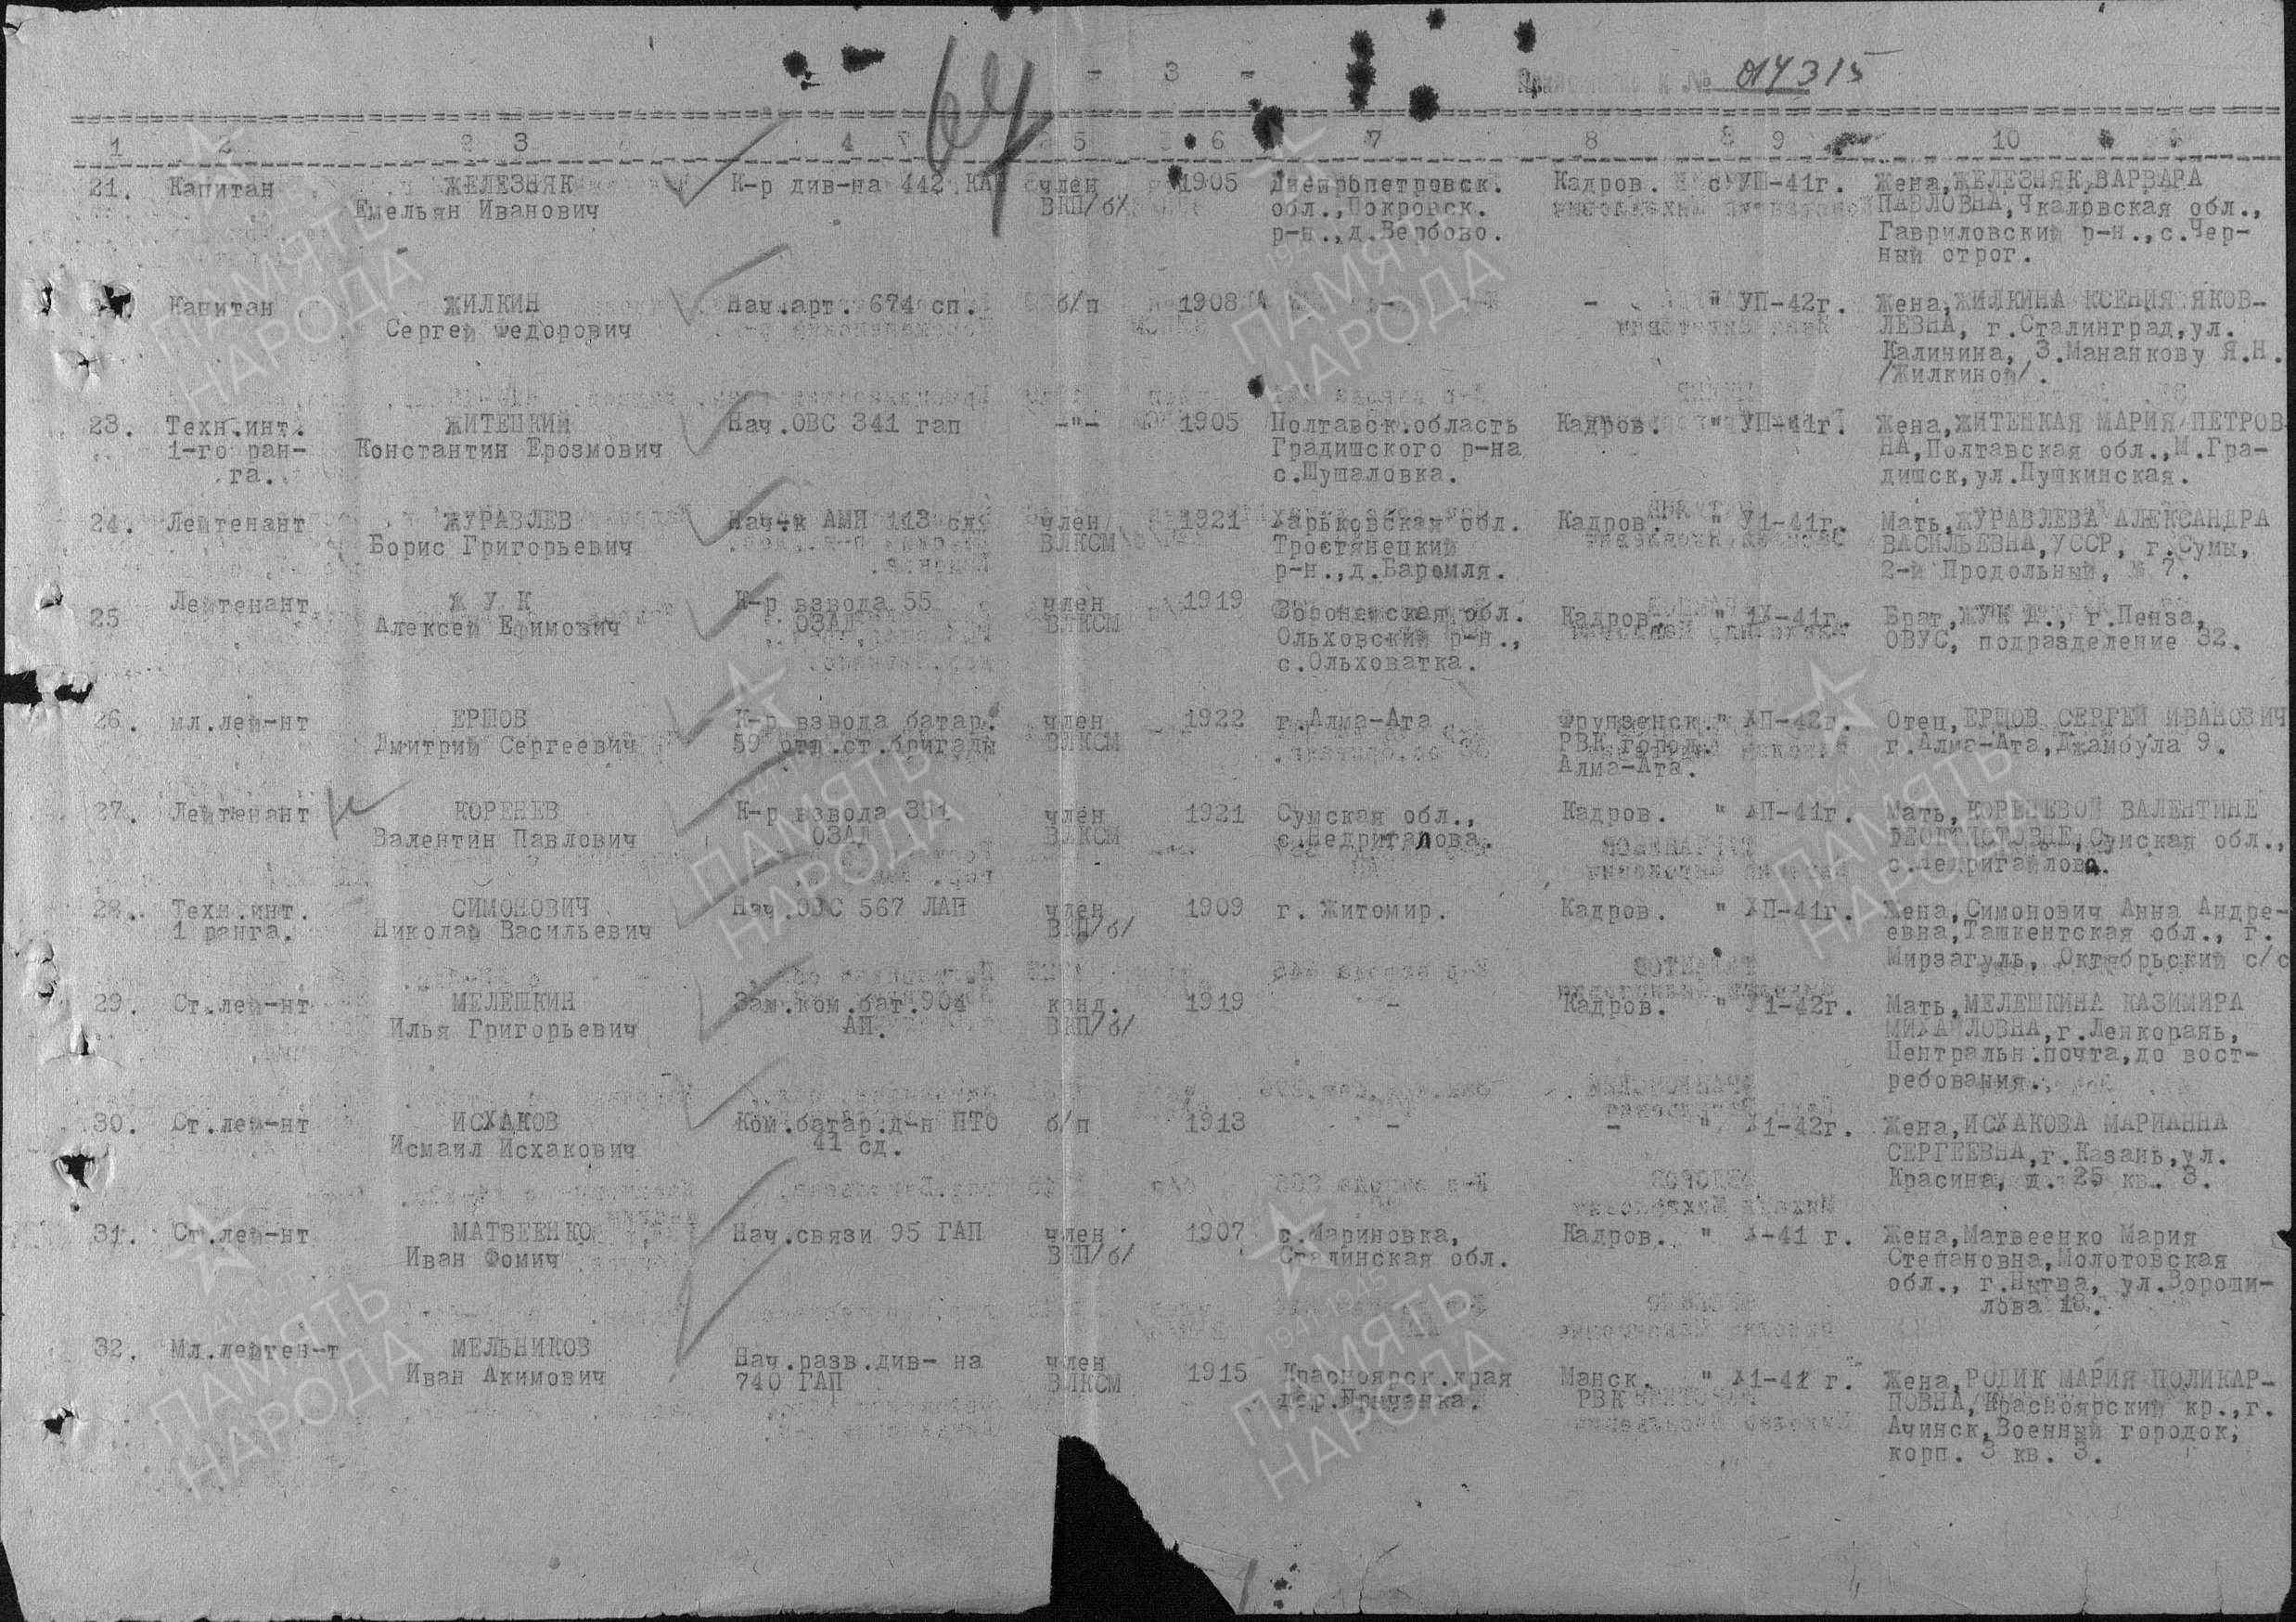 - 3 -
№ 014315
64
1 2 3 4 5 6 7 8 9 10
21. Капитан ЖЕЛЕЗНЯК К-р див-на 442 КАП член 1905 Днепропетровск. Кадров. с УШ-41г. Жена,ЖЕЛЕЗНЯК ВАРВАРА
Емельян Иванович ВКП/б/ обл.,Покровск. ПАВЛОВНА,Чкаловская обл.,
р-н.,д.Вербово. Гавриловский р-н.,с.Чер-
ный отрог.
Капитан ЖИЛКИН Нач.арт. 674 сп. б/п 1908 - " УП-42г. Жена,ЖИЛКИНА КСЕНИЯ ЯКОВ-
Сергей Федорович ЛЕВНА, г.Сталинград,ул.
Калинина, 3.Мананкову Я.Н.
/Жилкиной/.
23. Техн.инт. ЖИТЕЦКИЙ Нач.ОВС 341 гап -"- 1905 Полтавск.область Кадров. " УП-41г. Жена,ЖИТЕЦКАЯ МАРИЯ ПЕТРОВ-
1-го ран- Константин Ерозмович Градишского р-на НА,Полтавская обл.,М.Гра-
га. с.Шушаловка. дишск,ул.Пушкинская.
24. Лейтенант ЖУРАВЛЕВ Нач-к АМН 113 сд член 1921 Харьковская обл. Кадров. " У1-41г. Мать,ЖУРАВЛЕВА АЛЕКСАНДРА
Борис Григорьевич ВЛКСМ Тростянецкий ВАСИЛЬЕВНА,УССР, г.Сумы,
р-н.,д.Баромля. 2-й Продольный, № 7.
25 Лейтенант Ж У К К-р взвода 55 член 1919 Воронежская обл. Кадров. " 1Х-41г. Брат,ЖУК Д., г.Пенза,
Алексей Ефимович ОЗАД ВЛКСМ Ольховский р-н., ОВУС, подразделение 32.
с.Ольховатка.
26. мл.лей-нт ЕРШОВ К-р взвода батар. член 1922 г.Алма-Ата Фрунзенск." ХП-42г. Отец,ЕРШОВ СЕРГЕЙ ИВАНОВИЧ
Дмитрий Сергеевич 59 отд.ст.бригады ВЛКСМ РВК город. г.Алма-Ата,Джамбула 9.
Алма-Ата.
27. Лейтенант КОРЕНЕВ К-р взвода 351 член 1921 Сумская обл., Кадров. " ХП-41г. Мать, КОРЕНЕВОЙ ВАЛЕНТИНЕ
Валентин Павлович ОЗАД ВЛКСМ с.Недригалова. Сумская обл.,
с.Недригайлова.
28. Техн.инт. СИМОНОВИЧ Нач.ОВС 567 ЛАП член 1909 г. Житомир. Кадров. " ХП-41г. Жена,Симонович Анна Андре-
1 ранга. Николай Васильевич ВКП/б/ евна,Ташкентская обл., г.
Мирзагуль, Октябрьский с/с
29. Ст.лей-нт МЕЛЕШКИН Зам.ком.бат.904 канд. 1919 - Кадров. " У1-42г. Мать,МЕЛЕШКИНА КАЗИМИРА
Илья Григорьевич АП. ВКП/б/ МИХАЙЛОВНА,г.Ленкорань,
Центральн.почта,до вост-
ребования.
30. Ст.лей-нт ИСХАКОВ Ком.батар.д-н ПТО б/п 1913 - - " Х1-42г. Жена,ИСХАКОВА МАРИАННА
Исмаил Исхакович 41 сд. СЕРГЕЕВНА,г.Казань,ул.
Красина, д. 25 кв. 3.
31. Ст.лей-нт МАТВЕЕНКО Нач.связи 95 ГАП член 1907 с.Мариновка, Кадров. " Х-41 г. Жена,Матвеенко Мария
Иван Фомич ВКП/б/ Сталинская обл. Степановна,Молотовская
обл., г.Нытва, ул.Вороши-
лова 18.
32. Мл.лейтен-т МЕЛЬНИКОВ Нач.разв.див- на член 1915 Красноярск.края Манск. " Х1-41 г. Жена,РОДИК МАРИЯ ПОЛИКАР-
Иван Акимович 740 ГАП ВЛКСМ дер.Нричанка. РВК ПОВНА,/Красноярский кр.,г.
Ачинск,Военный городок,
корп. 3 кв. 3.
ПАМЯТЬ
НАРОДА